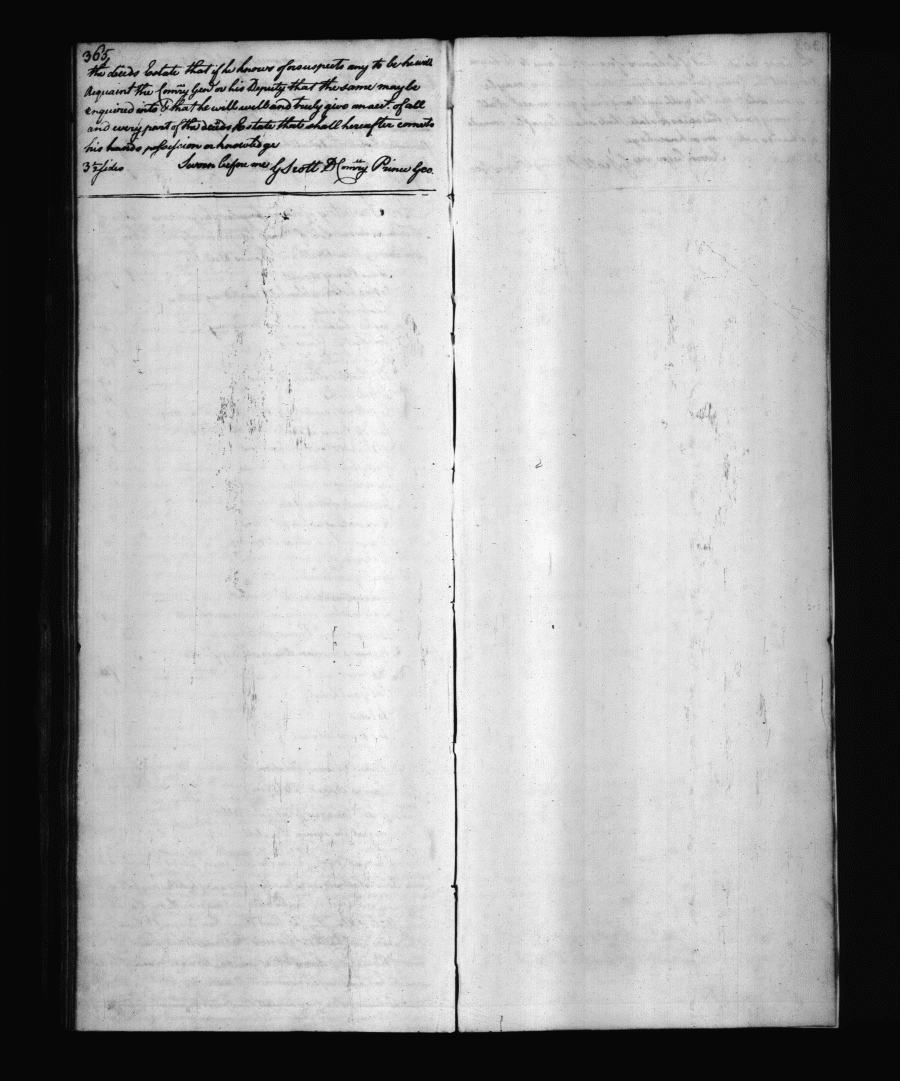 365
the deceds Estate that if he knows of or suspects any to be he will
Acquaint the Comry Genl or his Deputy that the same may be
enquired into & that he will well and truly give an acct. of all
and every part of the deceds Estate that shall hereafter come to
his hands possession or knowledge
3 sides Sworn before me G Scott D Comry Prince Geo.